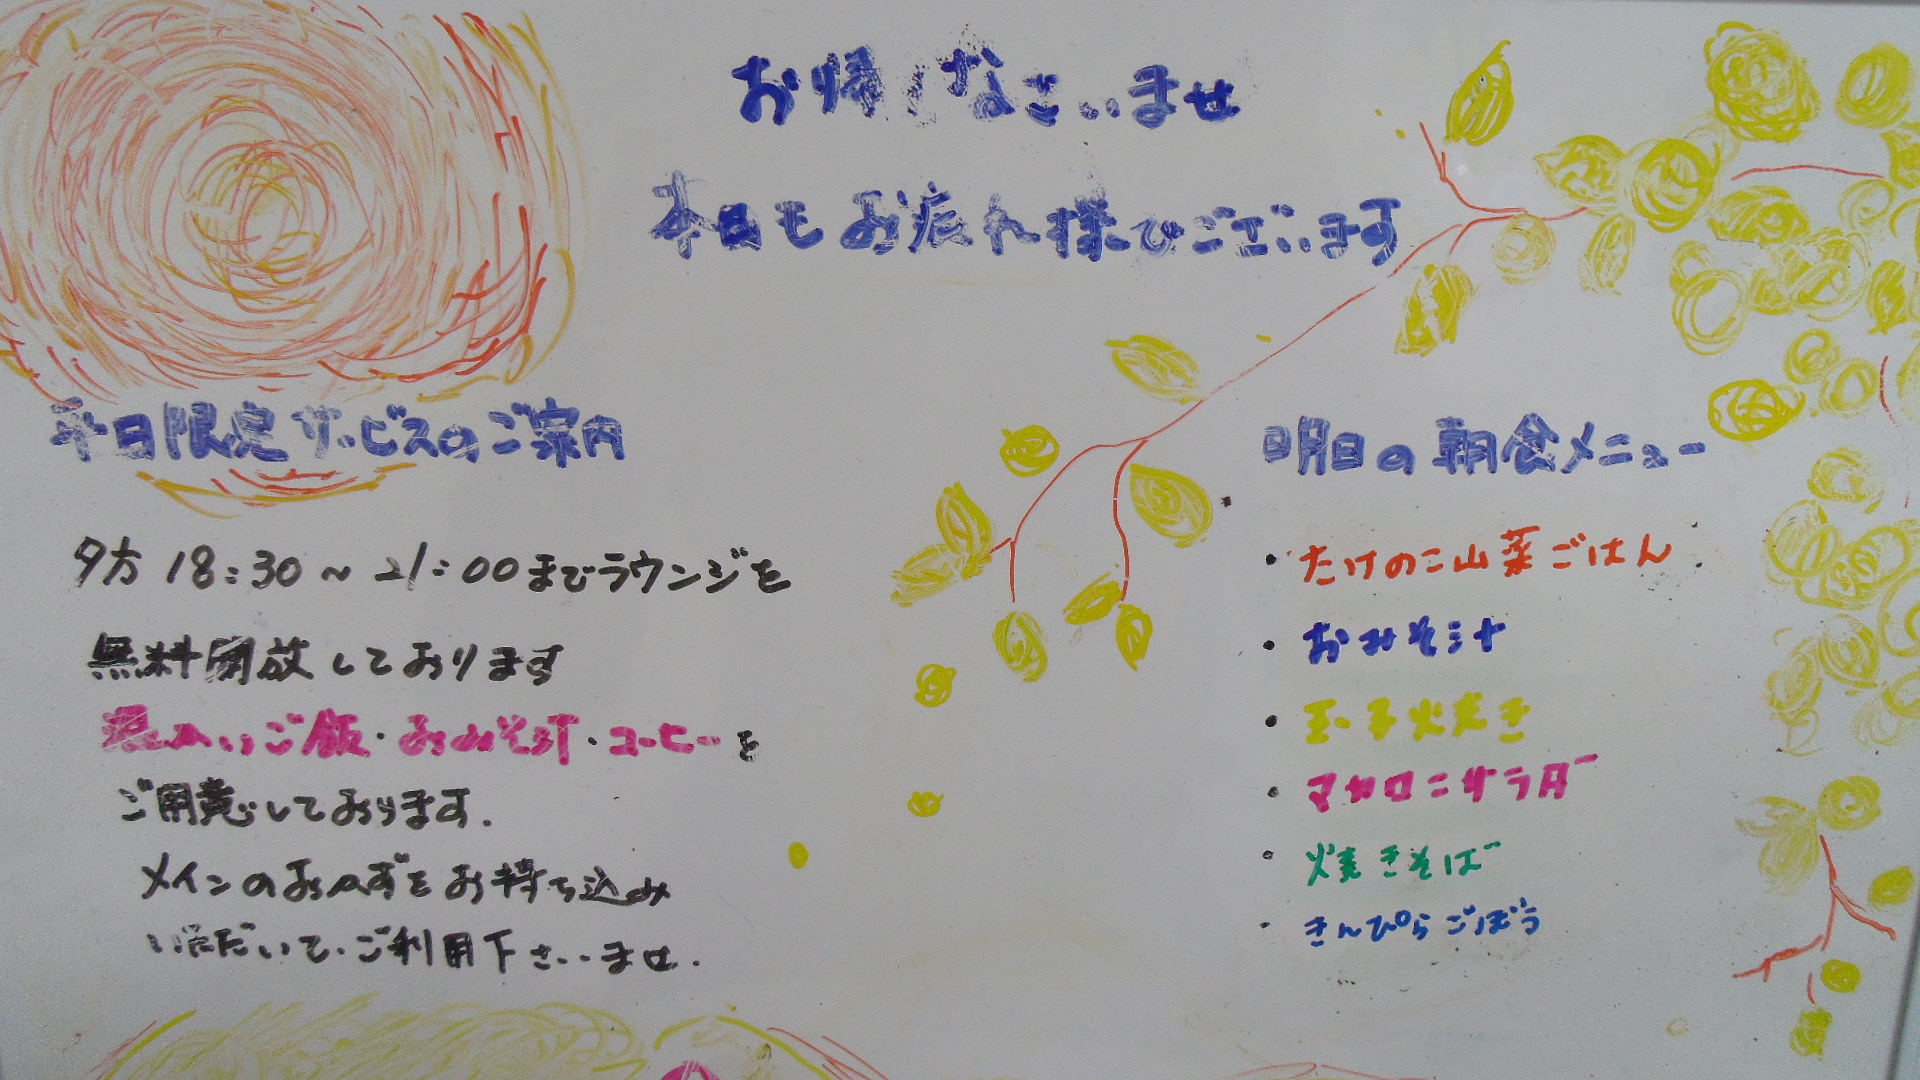 お帰りなさいませ
本日もお疲れ様でございます
平日限定サービスのご案内
夕方 18:30～21:00までラウンジを
無料開放しております
温かいご飯・おみそ汁・コーヒーを
ご用意しております.
メインのおかずをお持ち込み
いただいて、ご利用下さいませ.
明日の朝食メニュー
・たけのこ山菜ごはん
・おみそ汁
・玉子焼き
・マカロニサラダ
・焼きそば
・きんぴらごぼう